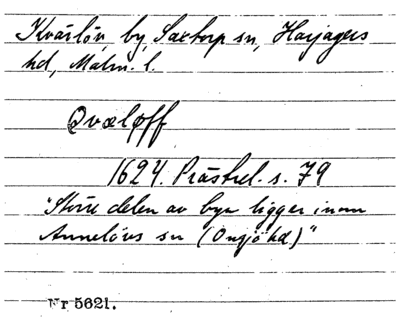 Kvärlöv, by, Saxtorp sn, Harjagers
hd, Malm. l.
Qvæløff
1624. Prästrel. s. 79
"Större delen av byn ligger inom
Annelövs sn (Onsjö hd)"
Nr 5621.